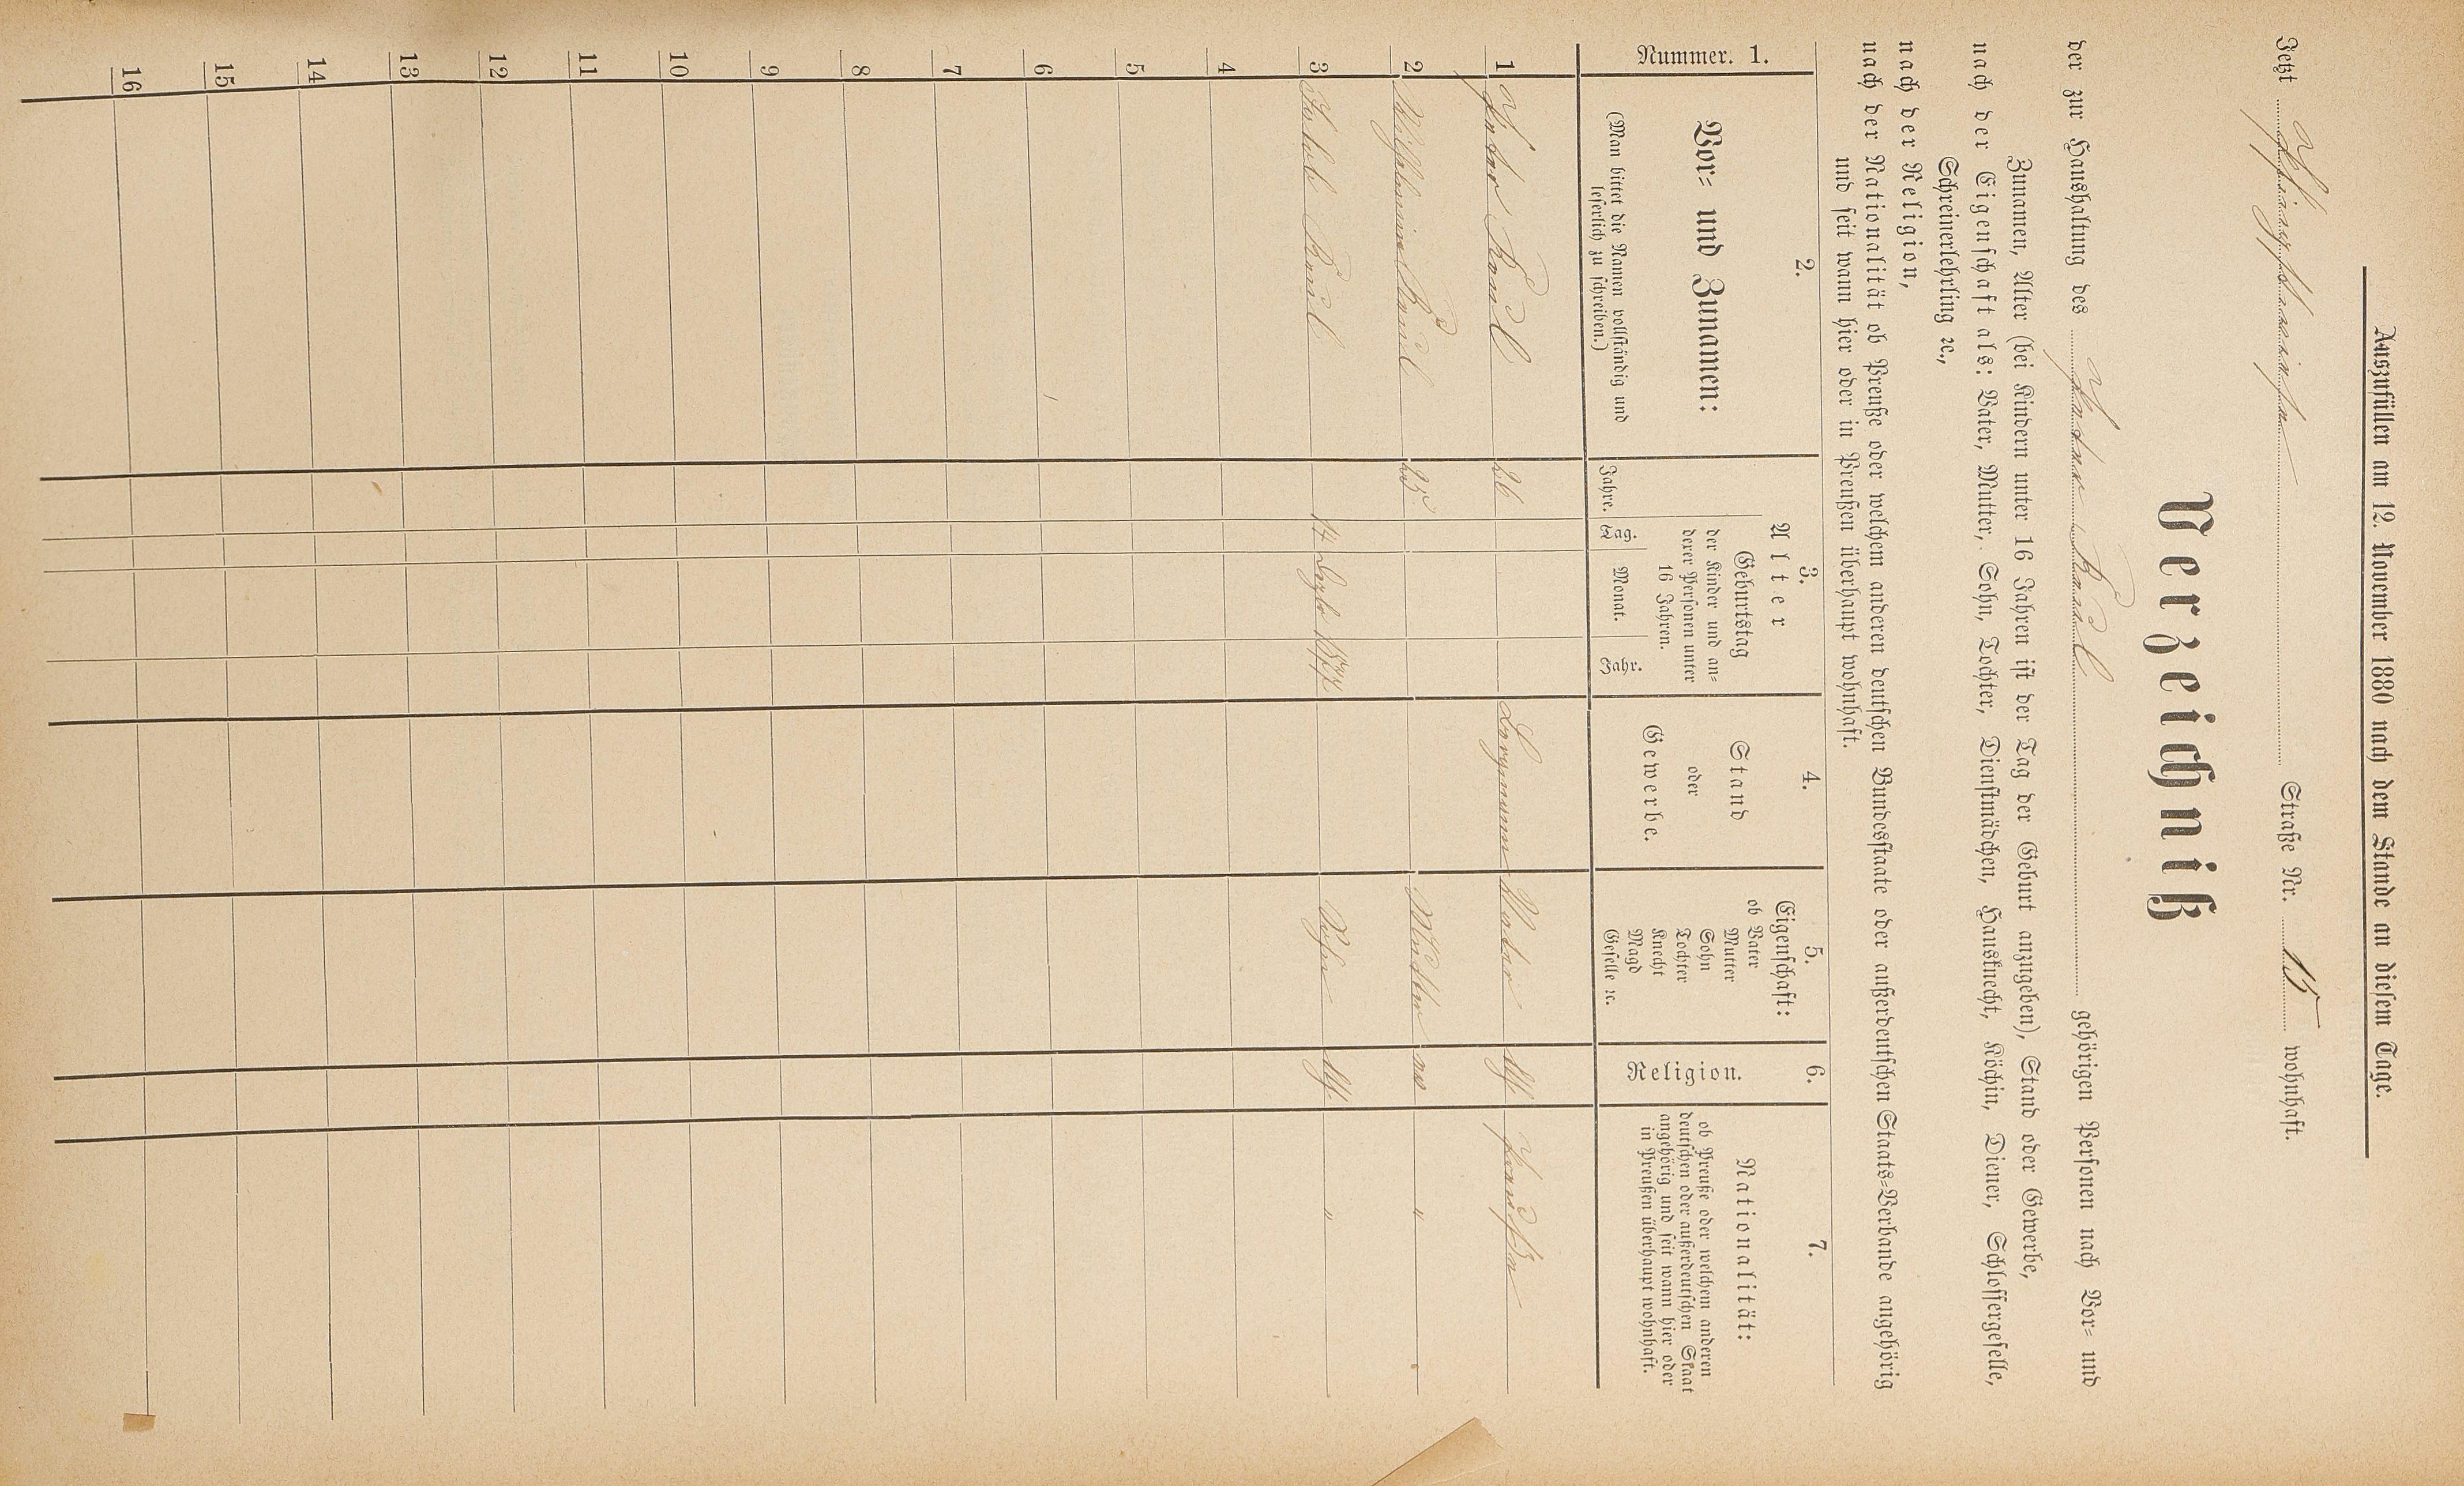 Auszufüllen am 12. November 1880 nach dem Stande an diesem Tage.
Jetzt Straße Nr. 15 wohnhaft.
Verzeichniß
der zur Haushaltung des Peter Kand gehörigen Personen nach Vor- und
Zunamen, Alter (bei Kindern unter 16 Jahren ist der Tag der Geburt anzugeben), Stand oder Gewerbe,
nach der Eigenschaft als: Vater, Mutter, Sohn, Tochter, Dienstmädchen, Hausknecht, Köchin, Diener, Schlossergeselle,
Schreinerlehrling ꝛc.,
nach der Religion,
nach der Nationalität ob Preuße oder welchem anderen deutschen Bundesstaate oder außerdeutschen Staats-Verbande angehörig
und seit wann hier oder in Preußen überhaupt wohnhaft.
Nummer. 1.
2.
Vor- und Zunamen:
(Man bittet die Namen vollständig und
leserlich zu schreiben.)
3.
Alter
Jahre.
Geburtstag
der Kinder und an-
derer Personen unter
16 Jahren.
Tag. Monat. Jahr.
4.
Stand
oder
Gewerbe.
5.
Eigenschaft:
ob Vater
Mutter
Sohn
Tochter
Knecht
Magd
Geselle ꝛc.
6.
Religion.
7.
Nationalität:
ob Preuße oder welchem anderen
deutschen oder außerdeutschen Staat
angehörig und seit wann hier oder
in Preußen überhaupt wohnhaft.
1 Peter 26 Bergmann Vater Preuße
2 Wilhelmine 25 Mutter "
3 Jakob 14 Sohn "
4
5
6
7
8
9
10
11
12
13
14
15
16